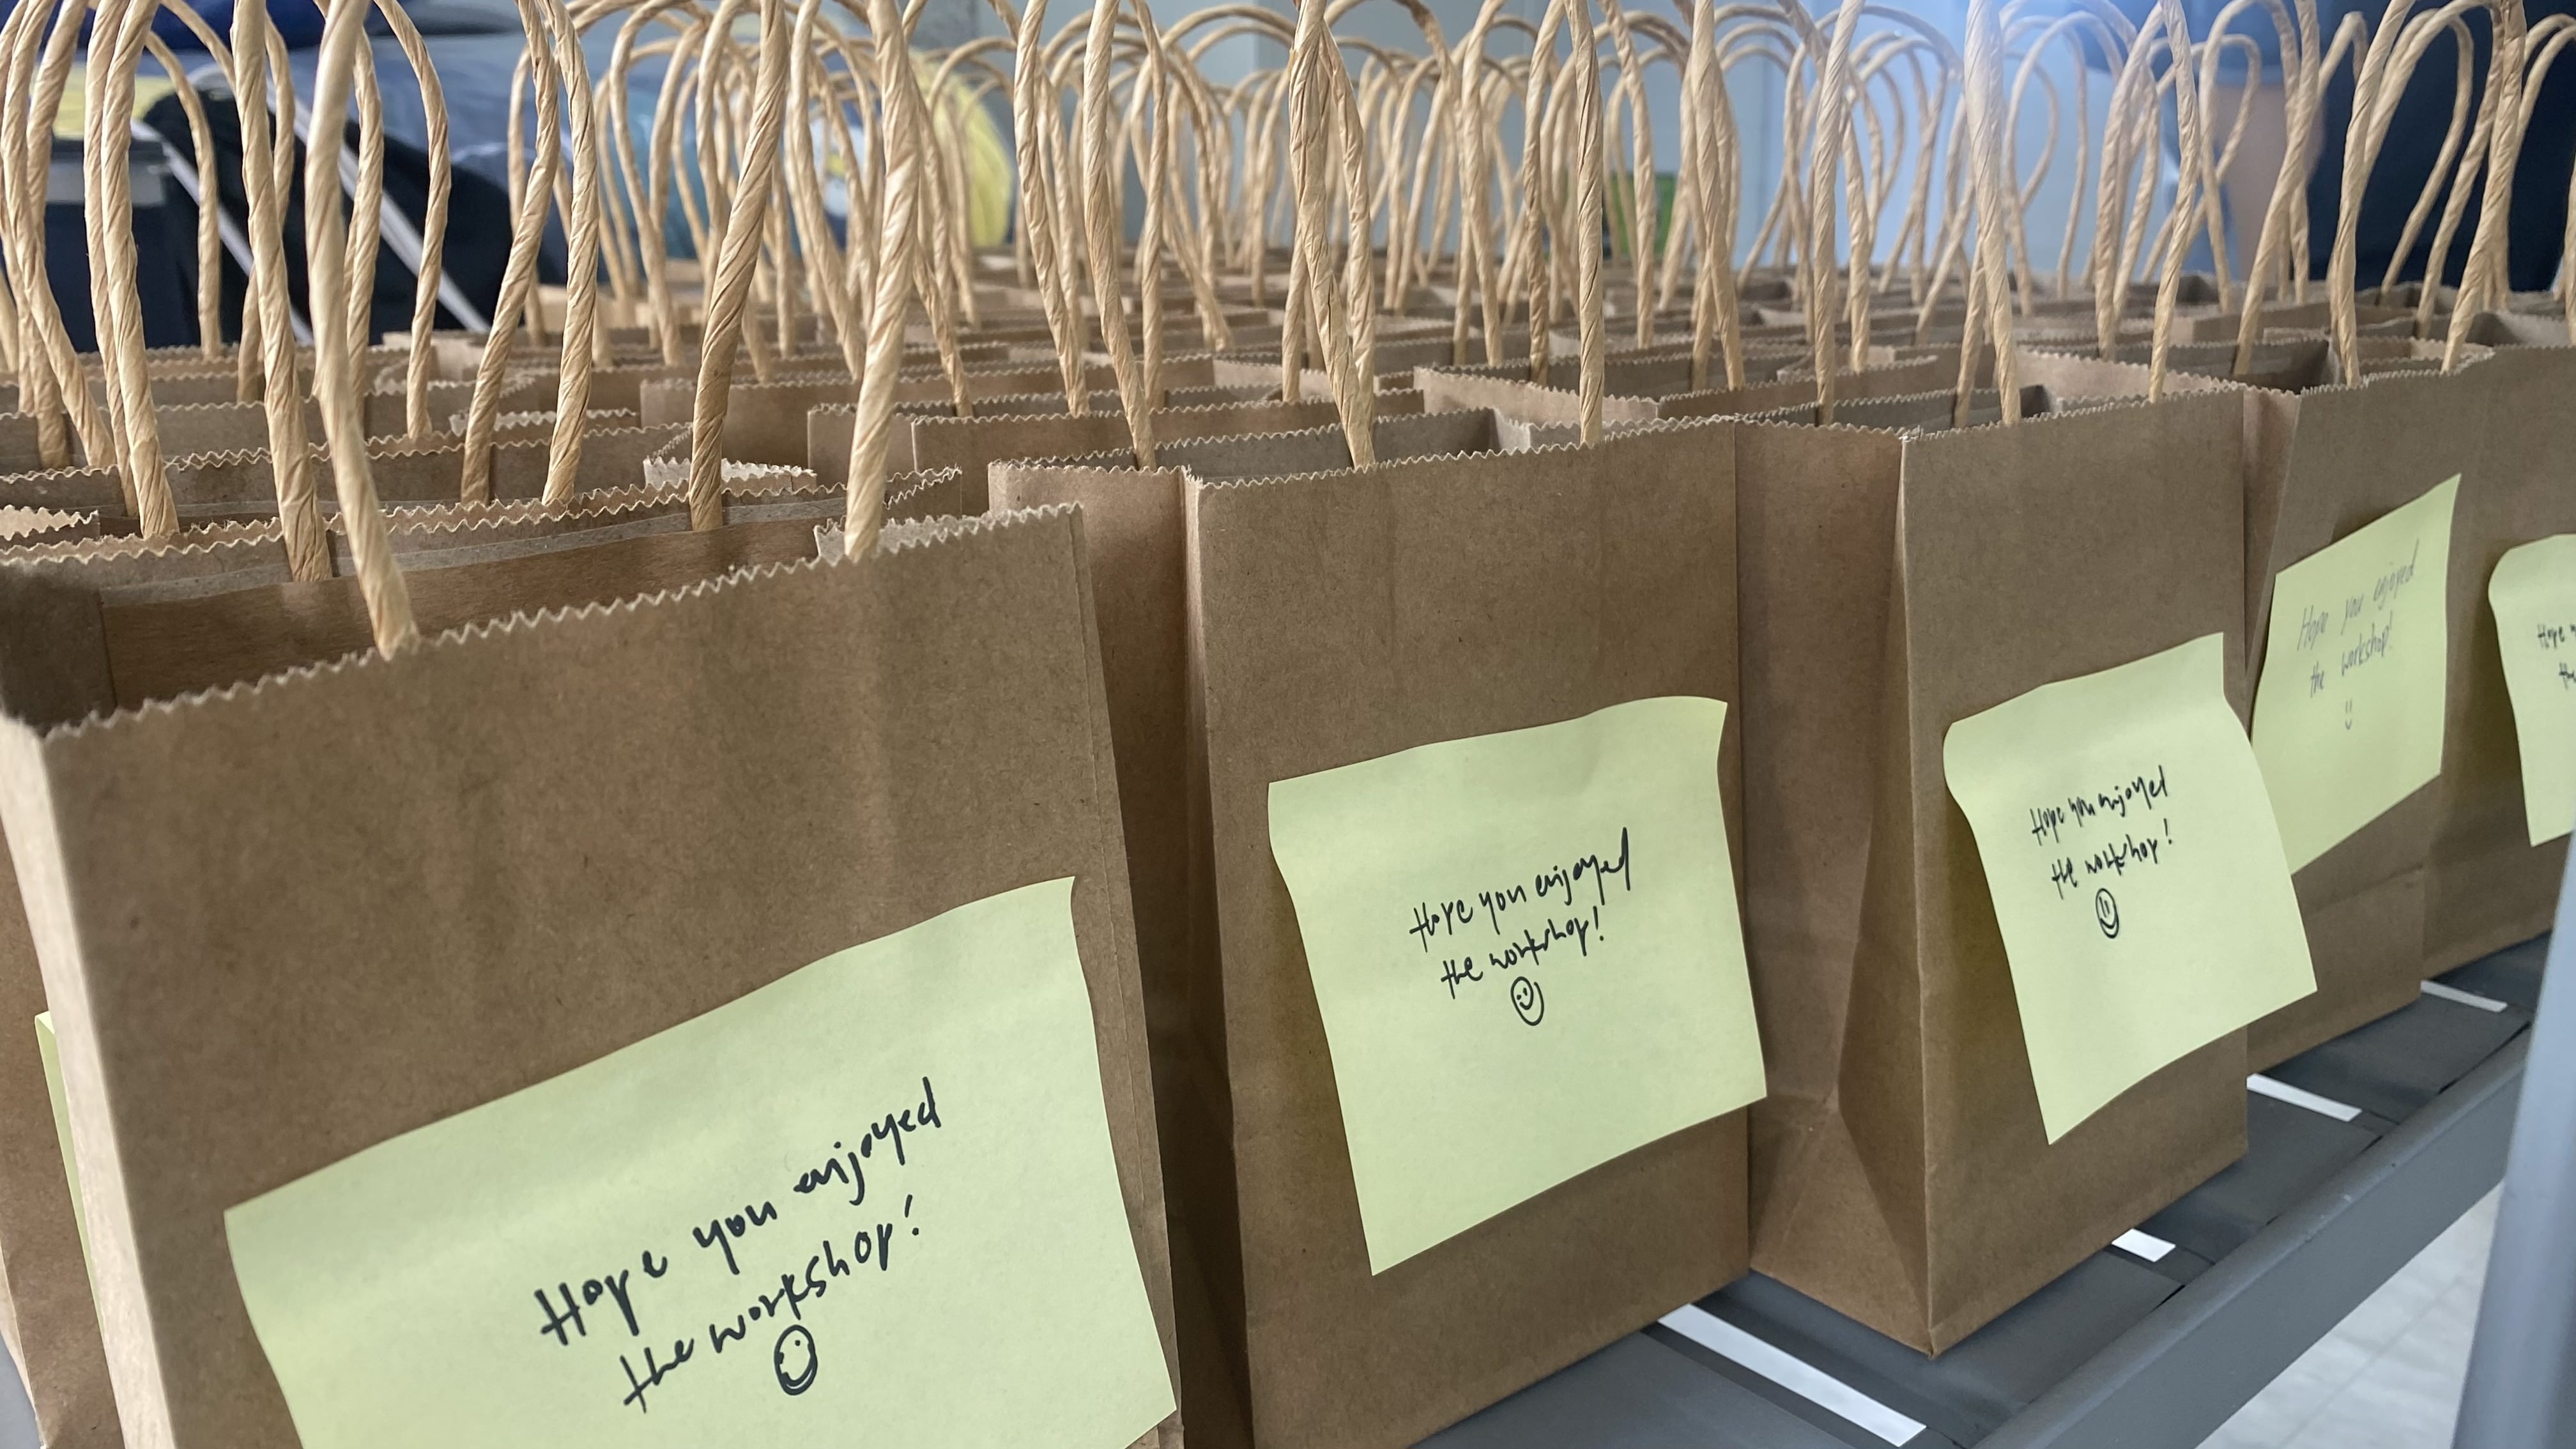 Hope you enjoyed
the workshop!
Hope you enjoyed
the workshop!
Hope you enjoyed
the workshop!
Hope you enjoyed
the workshop!
Hope
the